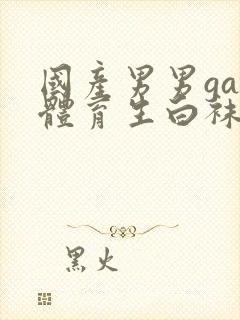 國産男男ga
體育生白袜
黑火